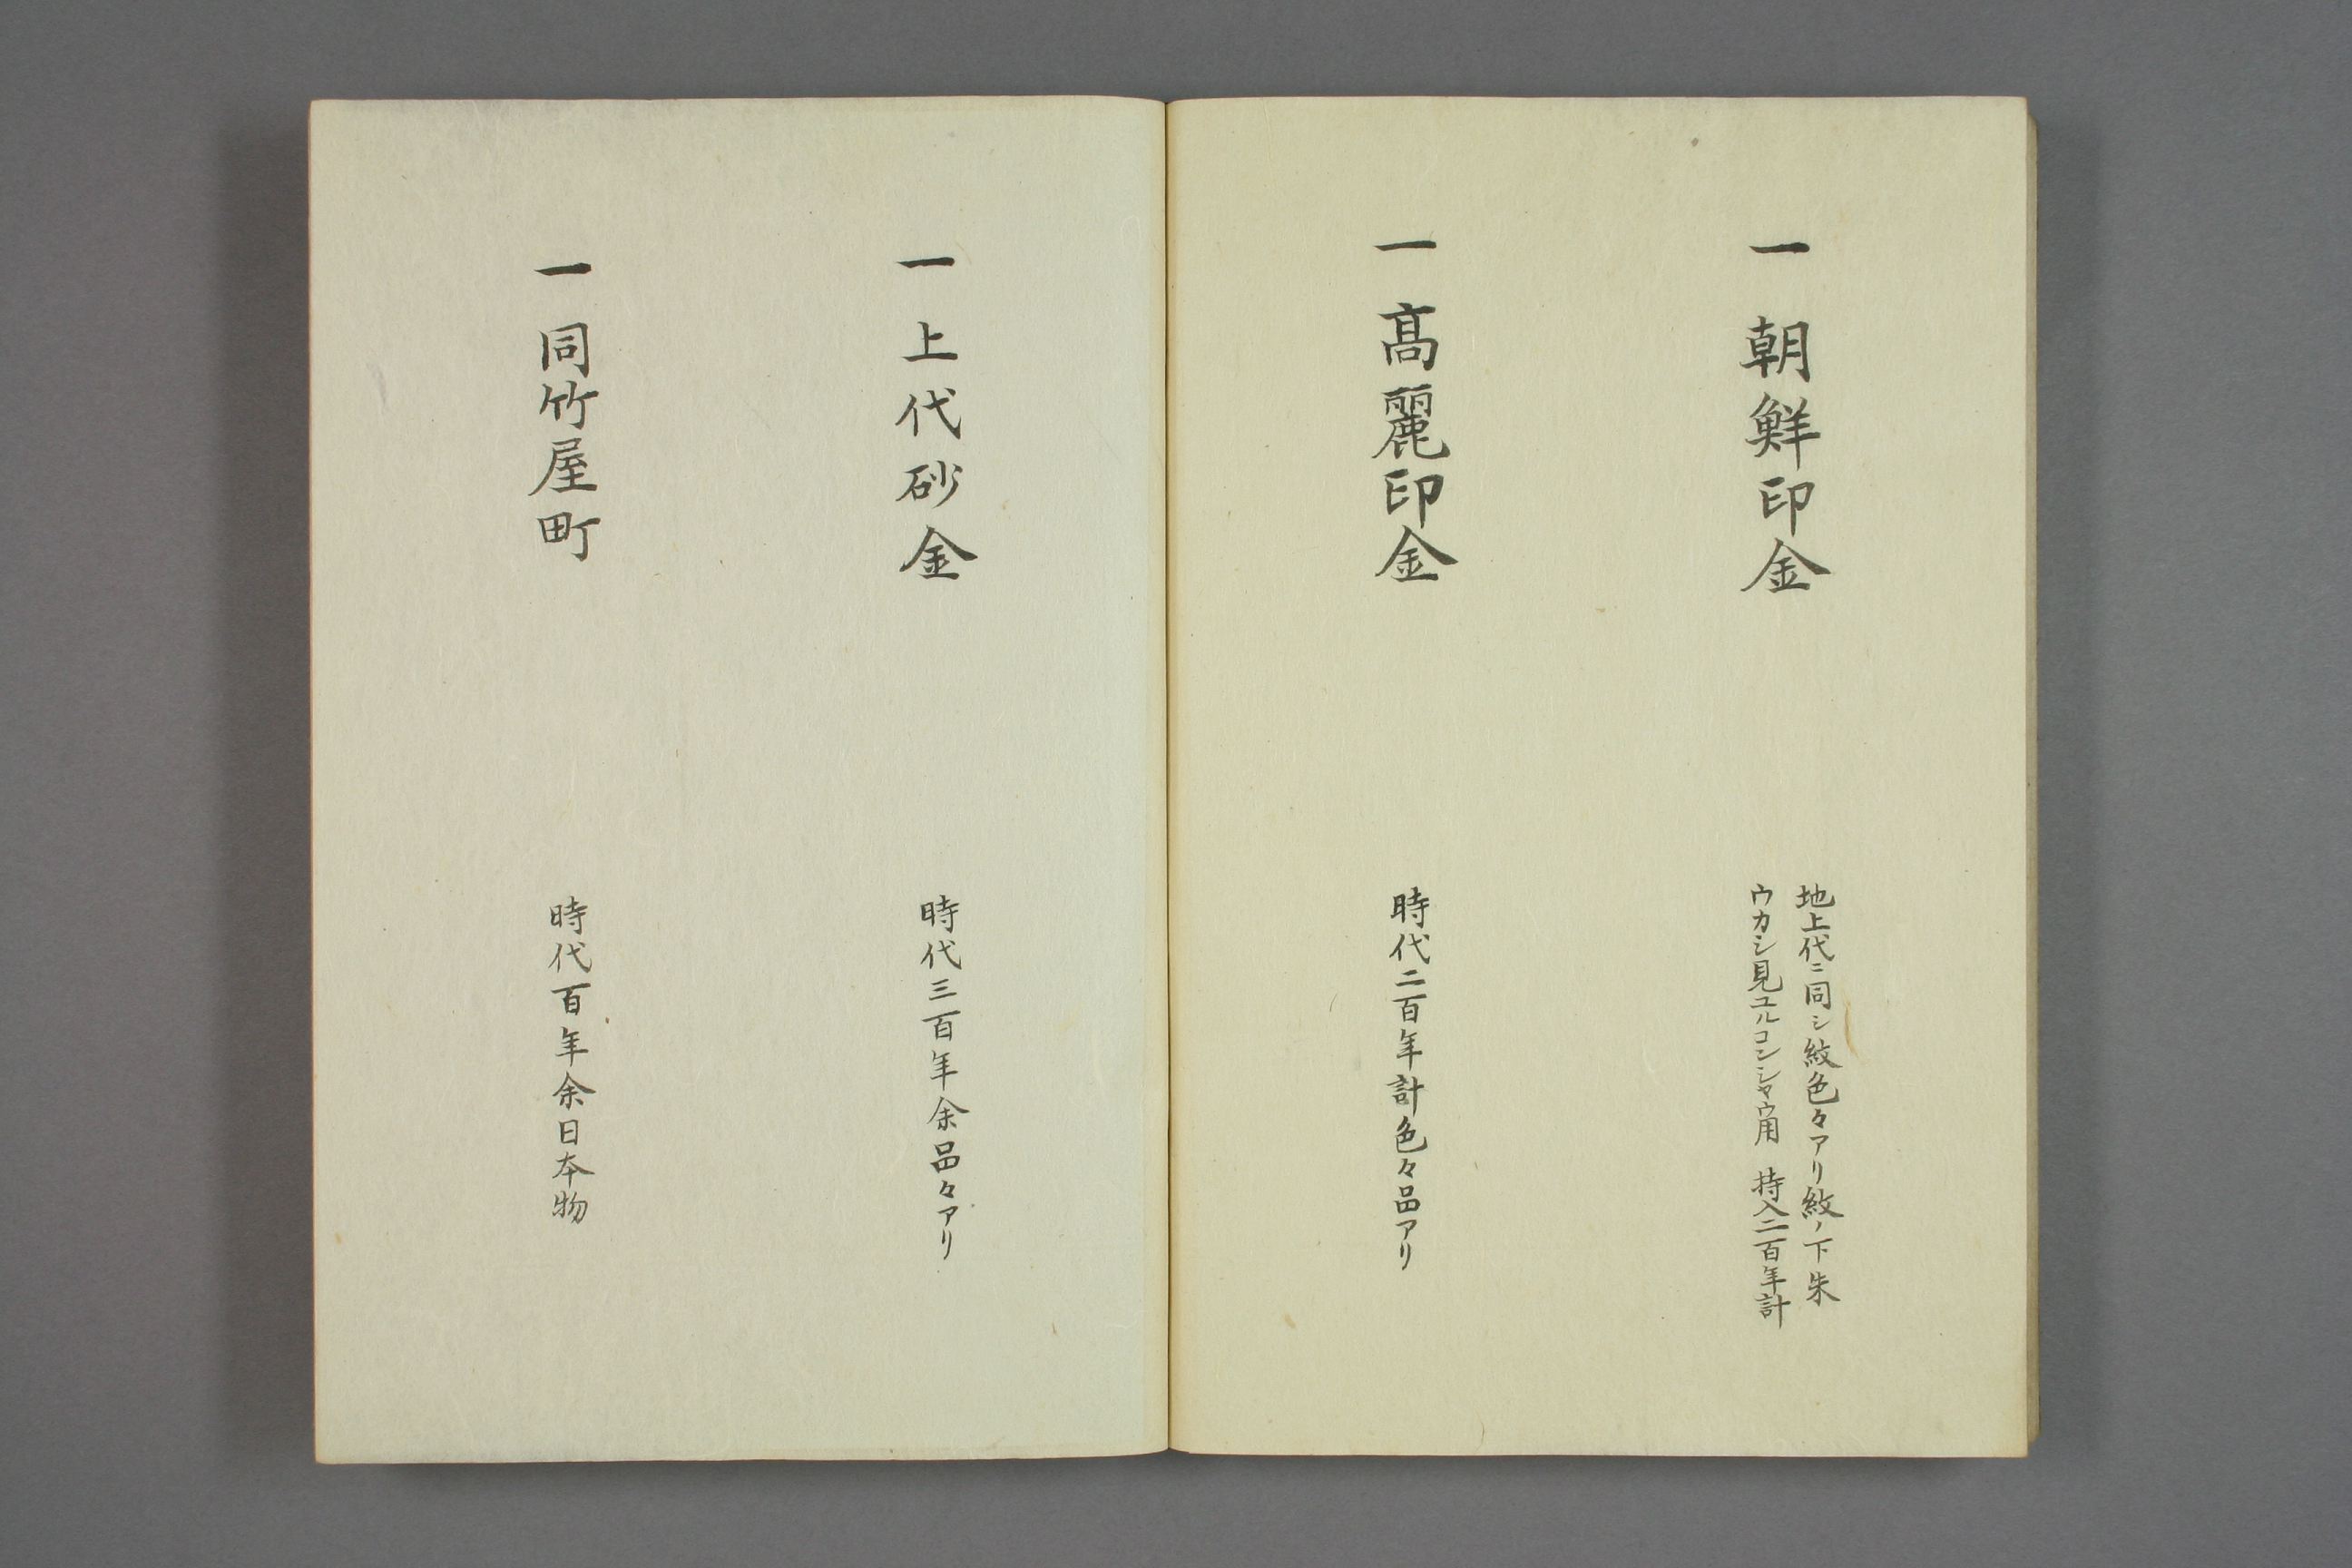 一 朝鮮印金
地上代ニ同シ紋色々アリ紋ノ下朱
ウカシ見ユルコンシヤウ用 持入二百年計
一 髙麗印金
時代二百年計色々品アリ
一 上代砂金
時代三百年余品々アリ
一 同竹屋町
時代百年余日本物